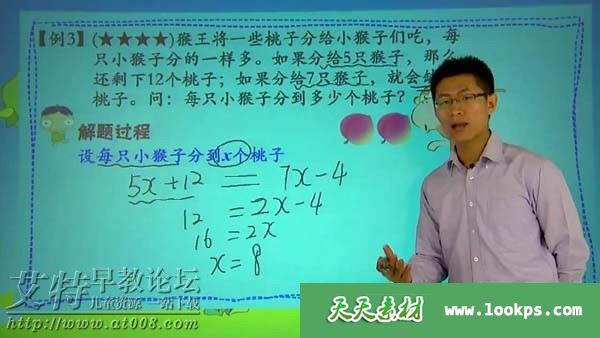 【例3】(★★★★)猴王将一些桃子分给小猴子们吃，每
只小猴子分的一样多。如果分给5只猴子，那么
还剩下12个桃子；如果分给7只猴子，就会
桃子。问：每只小猴子分到多少个桃子？
解题过程
设每只小猴子分到x个桃子
5x+12 = 7x-4
12 = 2x-4
16 = 2x
x = 8
艾特早教论坛
儿童资源 一站下载
http://www.at008.com
天天素材 www.lookps.com